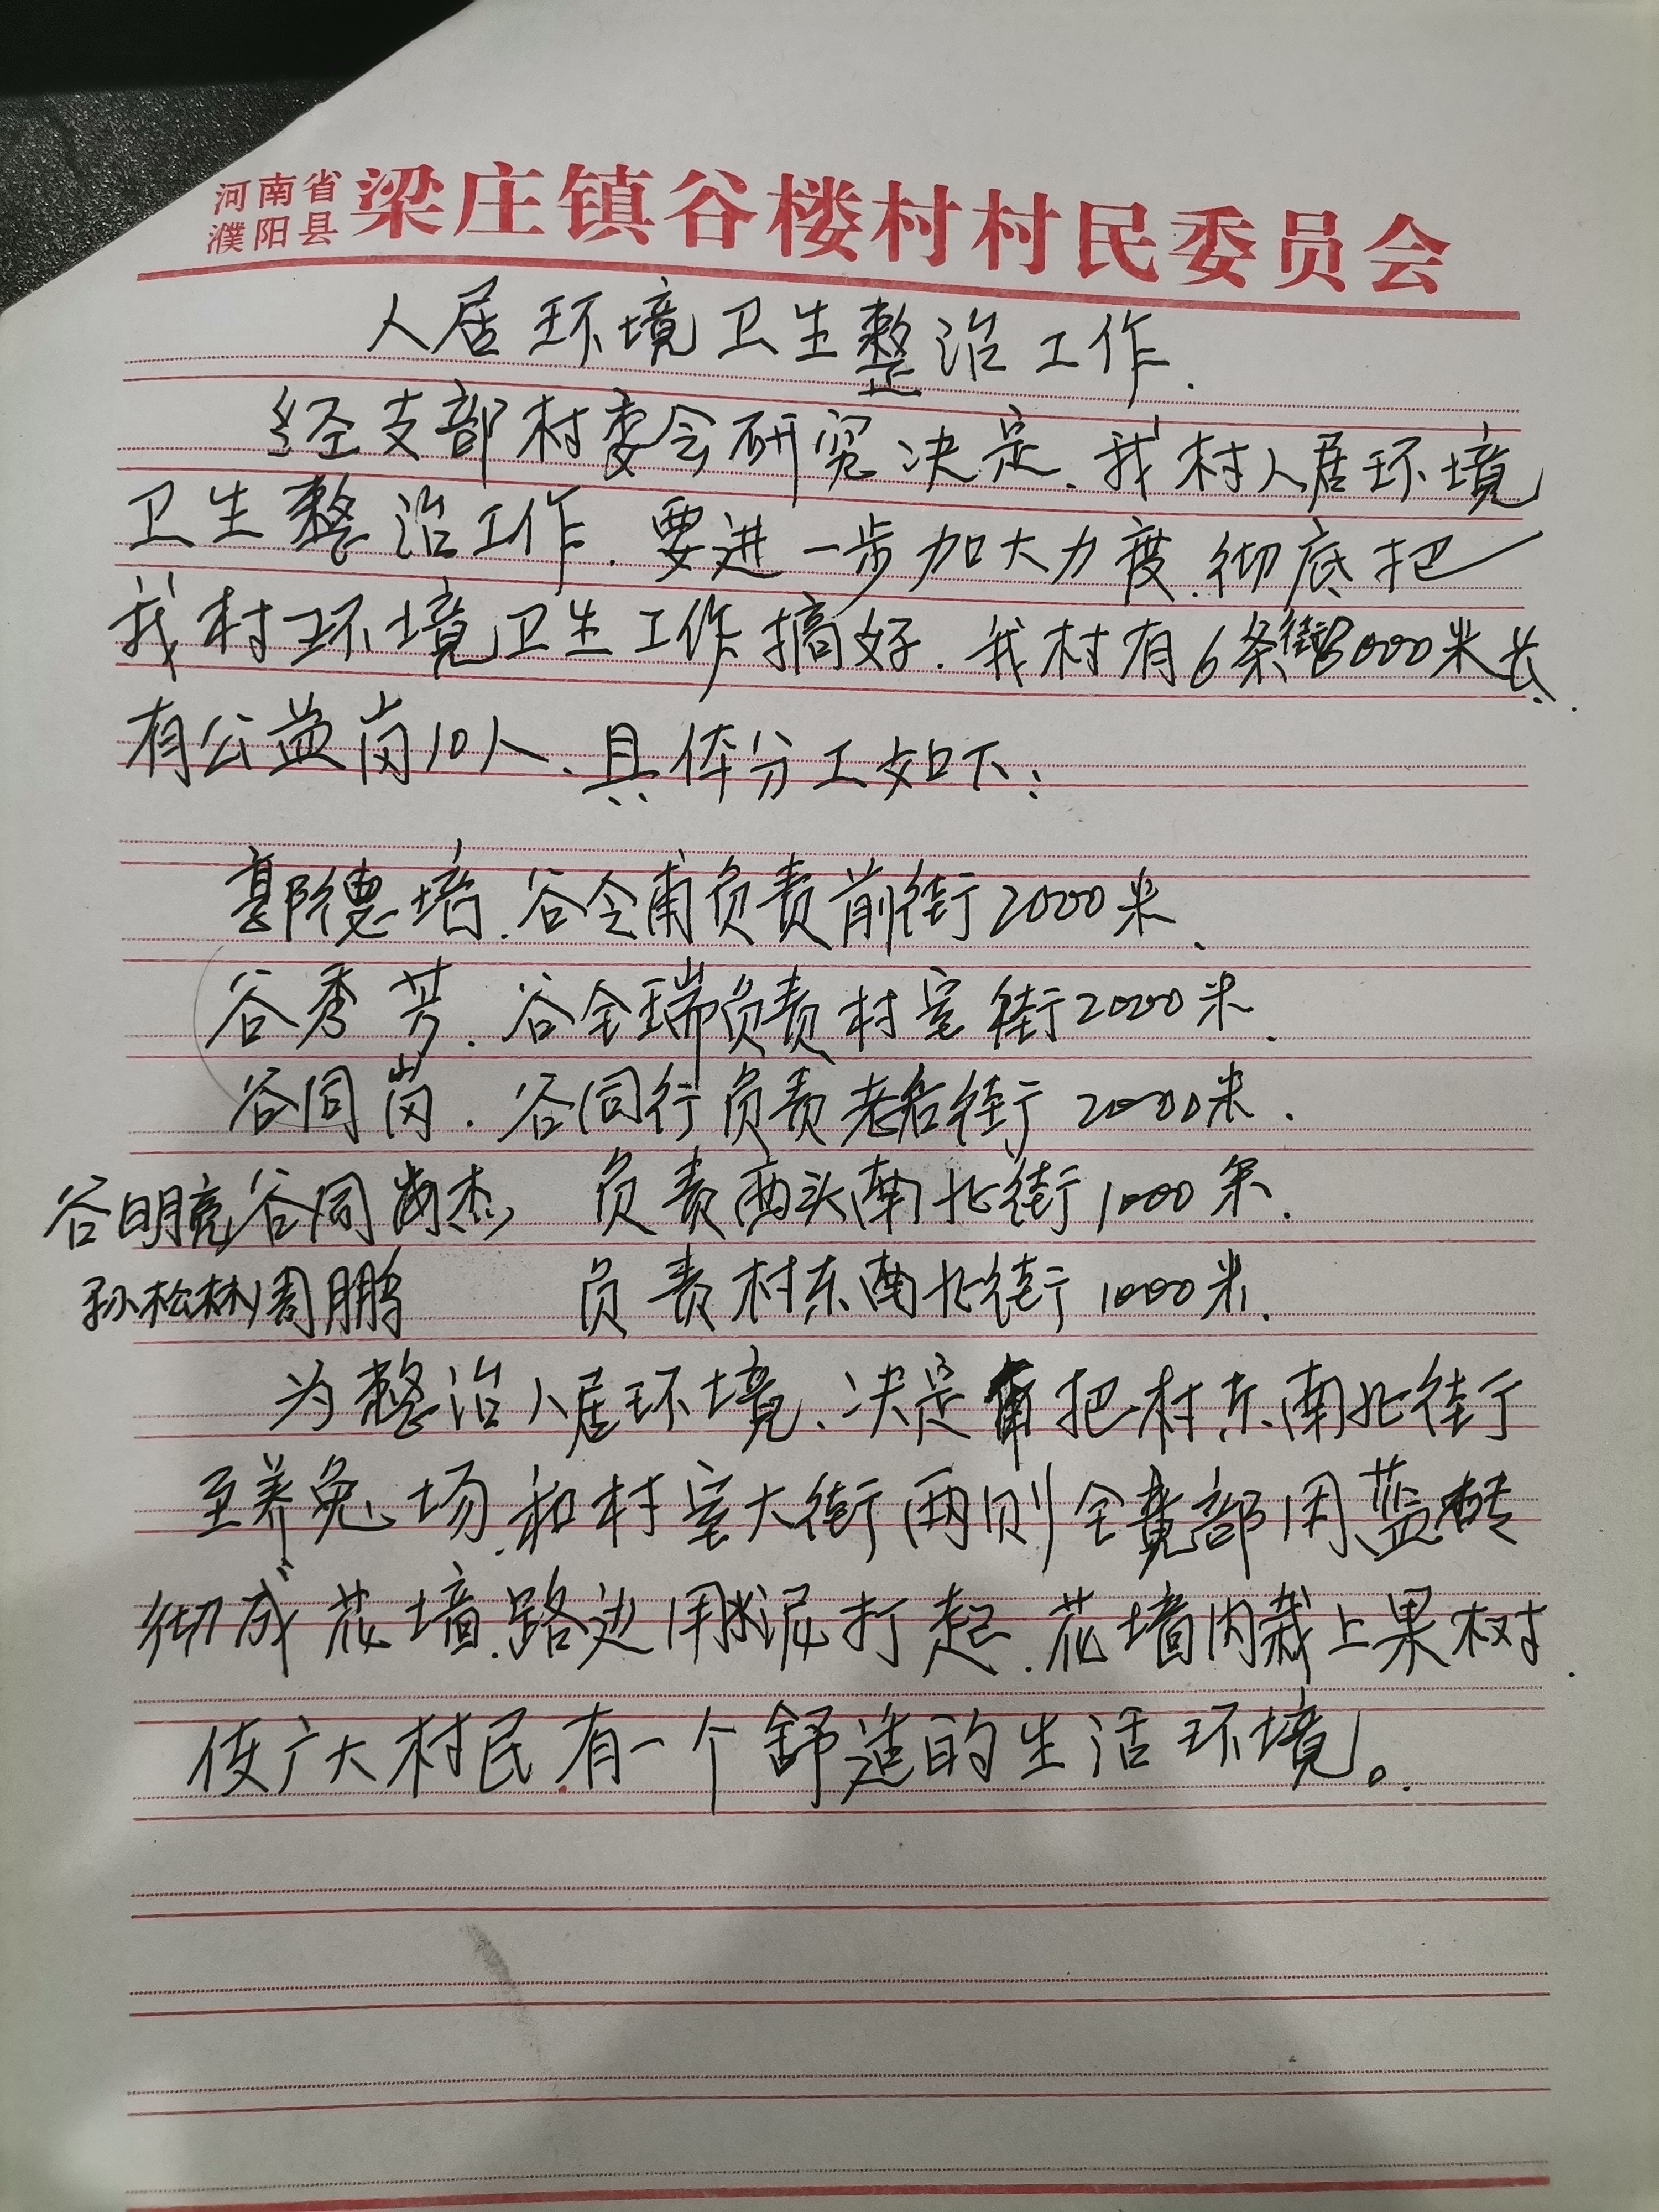 河南省
濮阳县
梁庄镇谷楼村村民委员会
人居环境卫生整治工作.
经支部村委会研究决定.我村人居环境
卫生整治工作.要进一步加大力度.彻底把
我村环境卫生工作搞好.我村有6条街8000米长.
有公益岗10人、具体分工如下:
郭德培.谷全甫负责前街2000米.
谷秀芳.谷全瑞负责村室街2000米.
谷同岗.谷同行负责老后街2000米.
谷明亮谷同岗杰 负责西头南北街1000米.
孙松林周鹏 负责村东南北街1000米.
为整治人居环境、决定 把村东南北街
至养兔场.和村室大街两则全部用蓝砖
彻成花墙.路边用水泥打起.花墙内栽上果树.
使广大村民有一个舒适的生活环境。